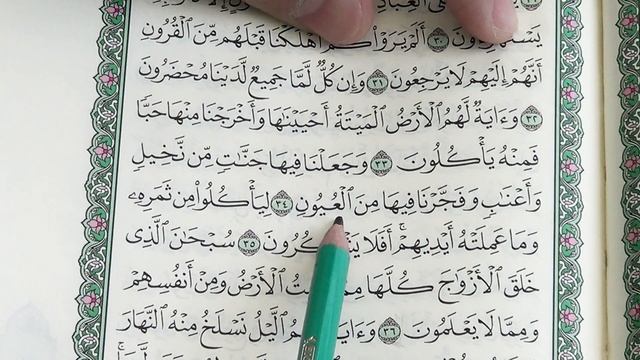 ٱلْعِبَادِ
أَلَمْ يَرَوْا۟ كَمْ أَهْلَكْنَا قَبْلَهُم مِّنَ ٱلْقُرُونِ
أَنَّهُمْ إِلَيْهِمْ لَا يَرْجِعُونَ ٣١ وَإِن كُلٌّ لَّمَّا جَمِيعٌ لَّدَيْنَا مُحْضَرُونَ
٣٢ وَءَايَةٌ لَّهُمُ ٱلْأَرْضُ ٱلْمَيْتَةُ أَحْيَيْنَٰهَا وَأَخْرَجْنَا مِنْهَا حَبًّا
فَمِنْهُ يَأْكُلُونَ ٣٣ وَجَعَلْنَا فِيهَا جَنَّٰتٍ مِّن نَّخِيلٍ
وَأَعْنَٰبٍ وَفَجَّرْنَا فِيهَا مِنَ ٱلْعُيُونِ ٣٤ لِيَأْكُلُوا۟ مِن ثَمَرِهِۦ
وَمَا عَمِلَتْهُ أَيْدِيهِمْ ۖ أَفَلَا ٣٥ سُبْحَٰنَ ٱلَّذِى
خَلَقَ ٱلْأَزْوَٰجَ كُلَّهَا ٱلْأَرْضُ وَمِنْ أَنفُسِهِمْ
وَمِمَّا لَا يَعْلَمُونَ ٣٦ ٱلَّيْلُ نَسْلَخُ مِنْهُ ٱلنَّهَارَ